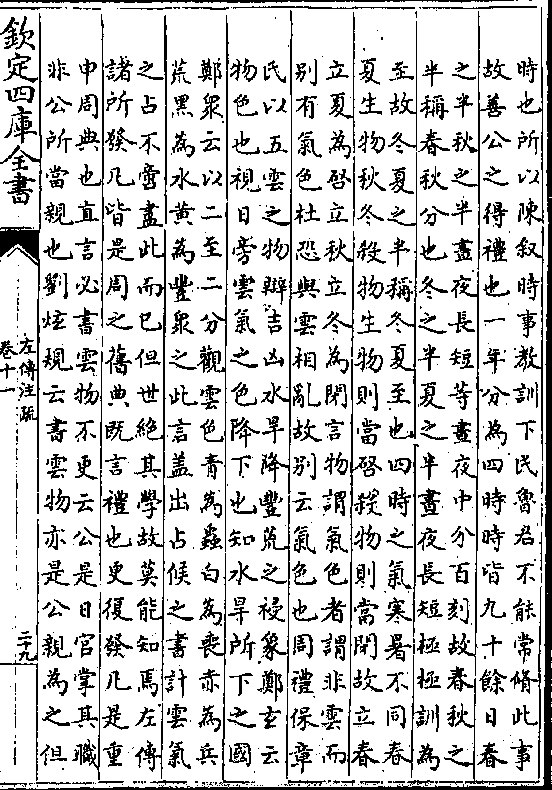 時也所以陳叙時事教訓下民魯君不能常脩此事
故善公之得禮也一年分為四時時皆九十餘日春
之半秋之半晝夜長短等晝夜中分百刻故春秋之
半稱春秋分也冬之半夏之半晝夜長短極極訓為
至故冬夏之半稱冬夏至也四時之氣寒暑不同春
夏生物秋冬殺物生物則當啓殺物則當閉故立春
立夏為啓立秋立冬為閉言物謂氣色者謂非雲而
别有氣色杜恐與雲相亂故别云氣色也周禮保章
氏以五雲之物辯吉凶水旱降豐荒之祲象鄭玄云
物色也視日旁雲氣之色降下也知水旱所下之國
鄭衆云以二至二分觀雲色青為蟲白為喪赤為兵
荒黑為水黄為豐衆之此言盖出占候之書計雲氣
之占不啻盡此而已但世絶其學故莫能知焉左傳
諸所發凡皆是周之舊典既言禮也更復發凡是重
申周典也直言必書雲物不更云公是日官掌其職
非公所當親也劉炫規云書雲物亦是公親為之但
欽定四庫全書
左傳注疏
卷十一
二十九